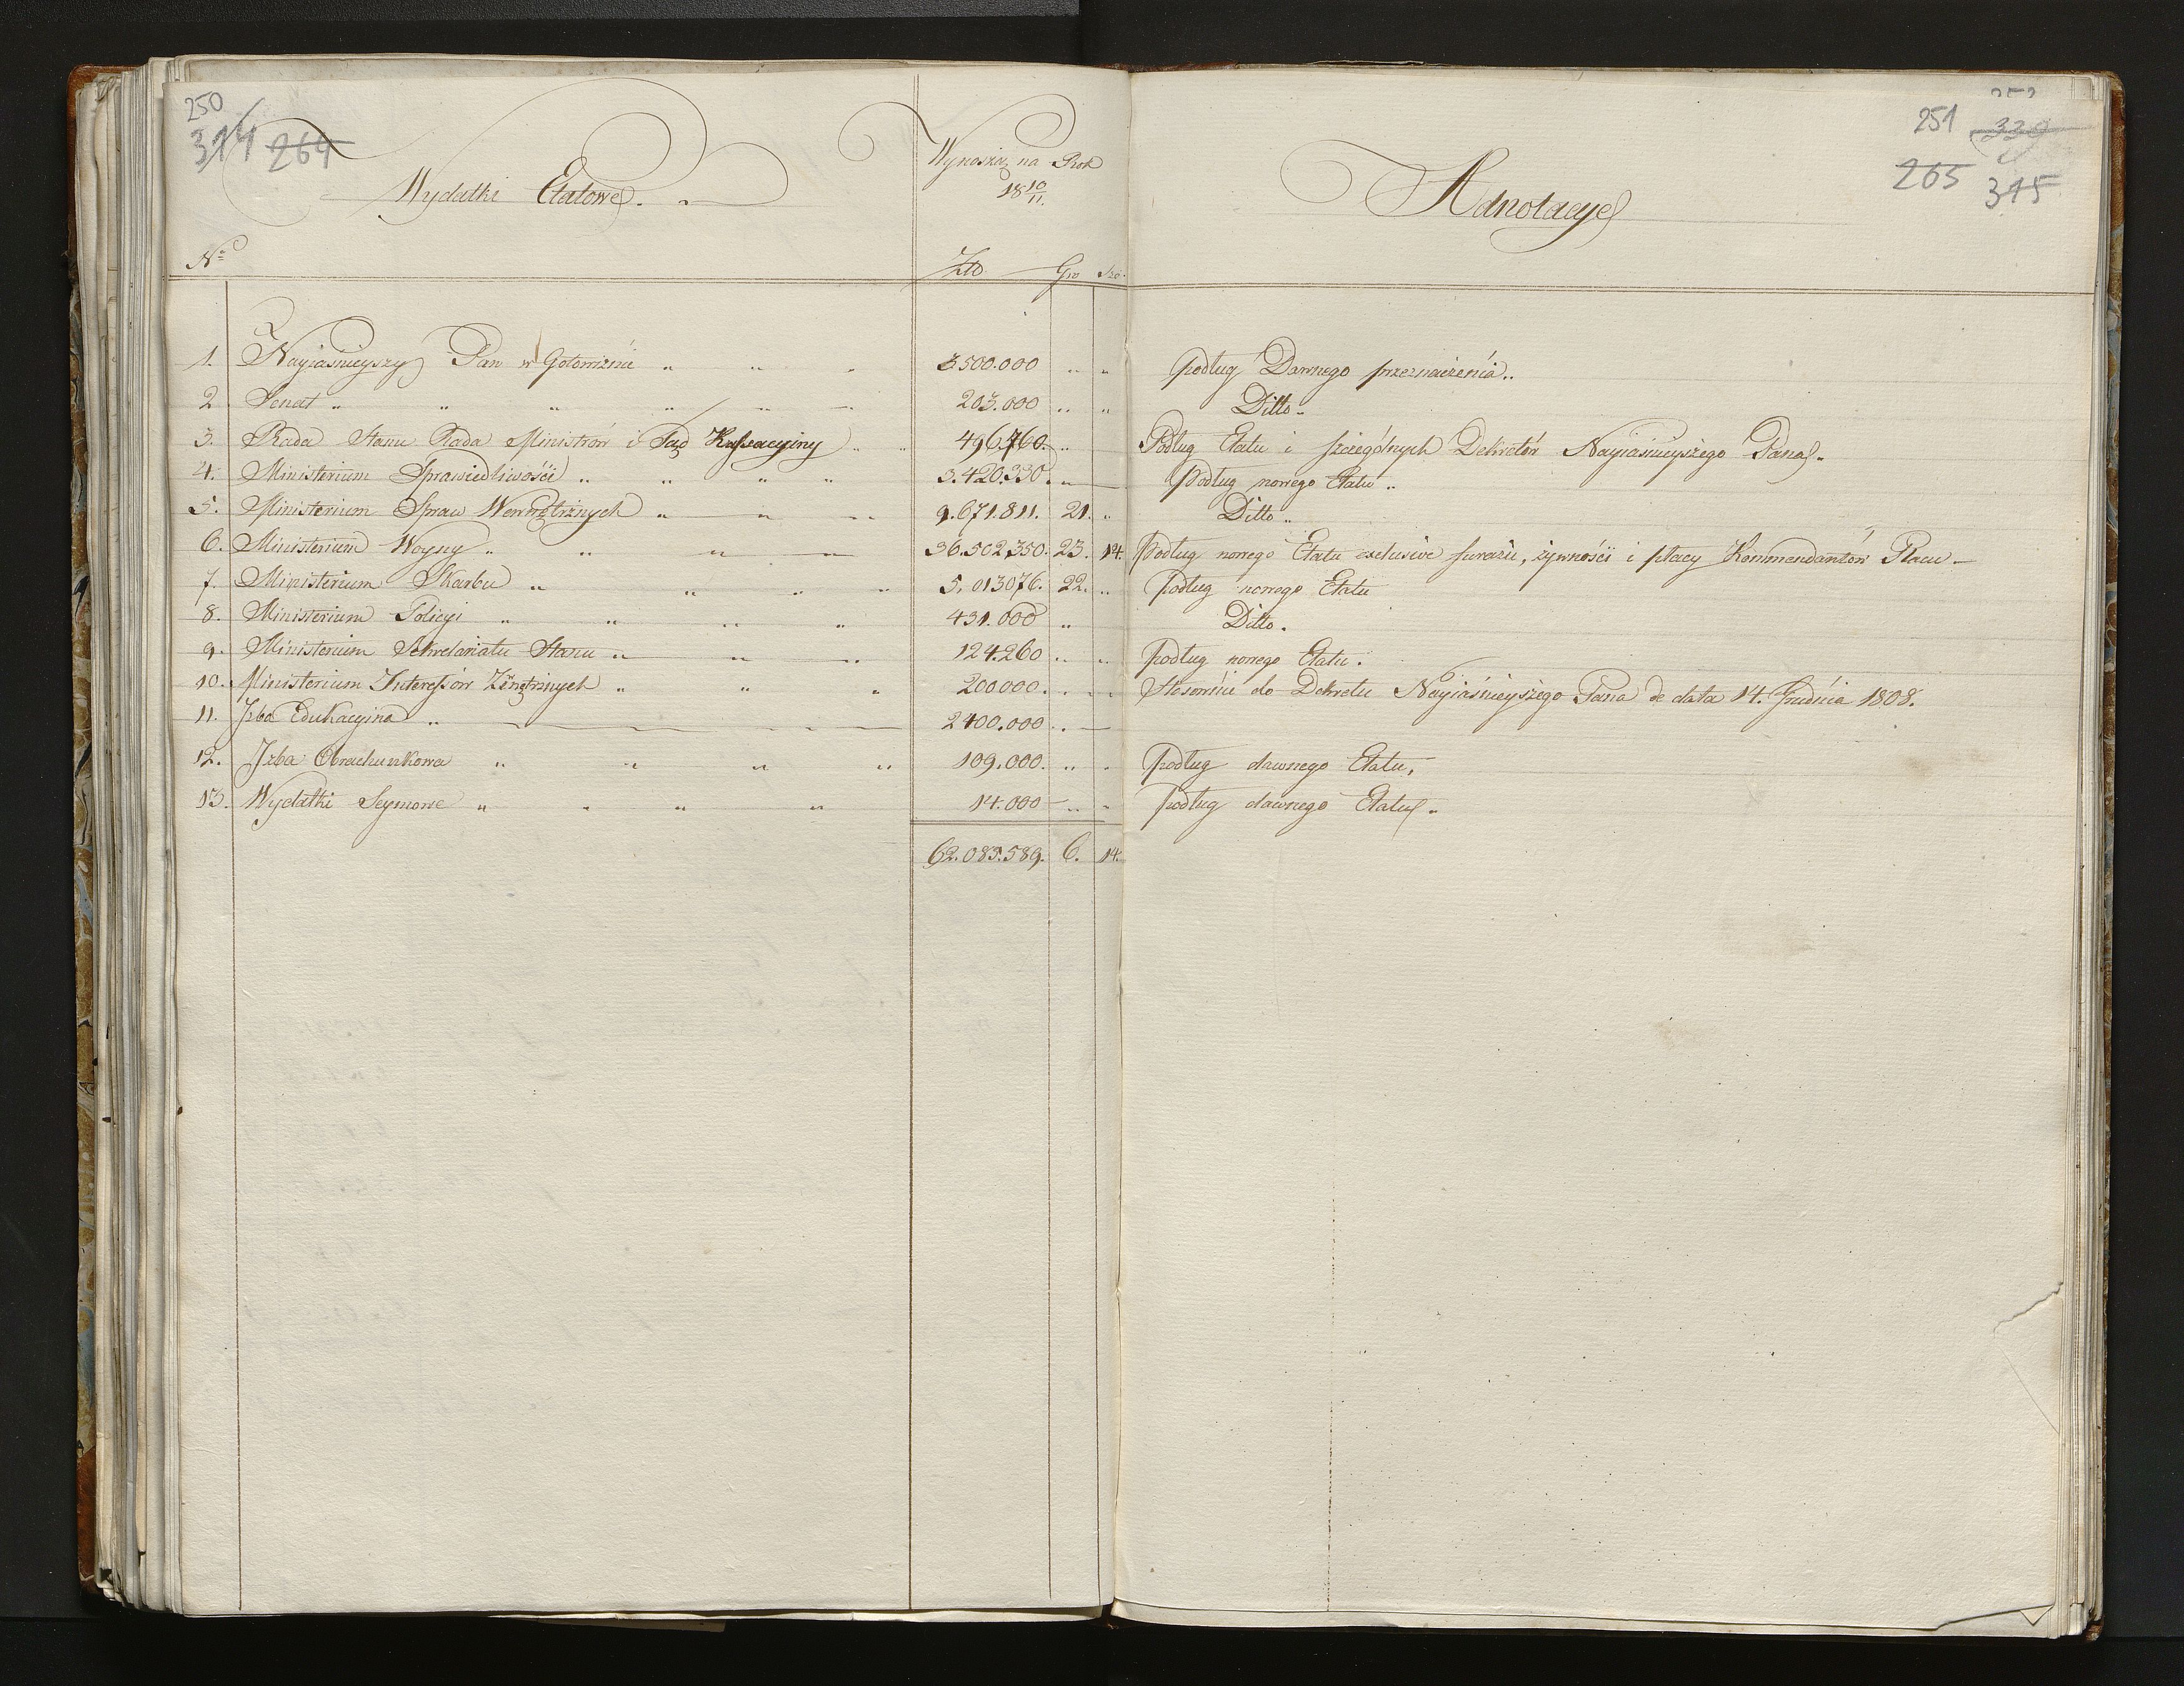 250
314 264
Wydatki Etatowe.
Wynoszą na Rok
18 10/11.
No
Zło Gro Sze.
1. Nayiaśnieyszy Pan w Gotowiźnie „ „ „ 3500.000 „ „
2. Senat „ „ „ „ „ „ 203.000 „ „
3. Rada Stanu Rada Ministrów i Sąd Kassacyiny „ „ 496.760. „
4. Ministerium Sprawiedliwości „ „ „ „ 3.420.330. „
5. Ministerium Spraw Wewnętrznych „ „ „ 9.671.811. 21. „
6. Ministerium Woyny „ „ „ „ 36.502.350. 23. 14.
7. Ministerium Skarbu „ „ „ „ 5.013076. 22. „
8. Ministerium Policyi „ „ „ „ 431.000 „
9. Ministerium Sekretariatu Stanu „ „ „ 124.260 „ „
10. Ministerium Interessów Zewnętrznych „ „ „ 200.000. „ „
11. Jzba Edukacyina „ 2400.000 „
12. Jzba Obrachunkowa „ „ „ „ 109.000. „ „
13. Wydatki Seymowe „ „ „ „ 14.000 „ „
62.085.589. 6. 14.
251 339
265 315
Adnotacye
podług Dawnego przeznaczenia..
Ditto.
Podług Etatu i szczególnych Dekretów Nayiaśnieyszego Pana.
Podług nowego Etatu „
Ditto „
Podług nowego Etatu exclusive furażu, żywności i płacy Kommendantów Placu –
podług nowego Etatu
Ditto.
podług nowego Etatu.
Stosownie do Dekretu Nayiaśnieyszego Pana de data 14. Grudnia 1808.
podług dawnego Etatu,
podług dawnego Etatu.